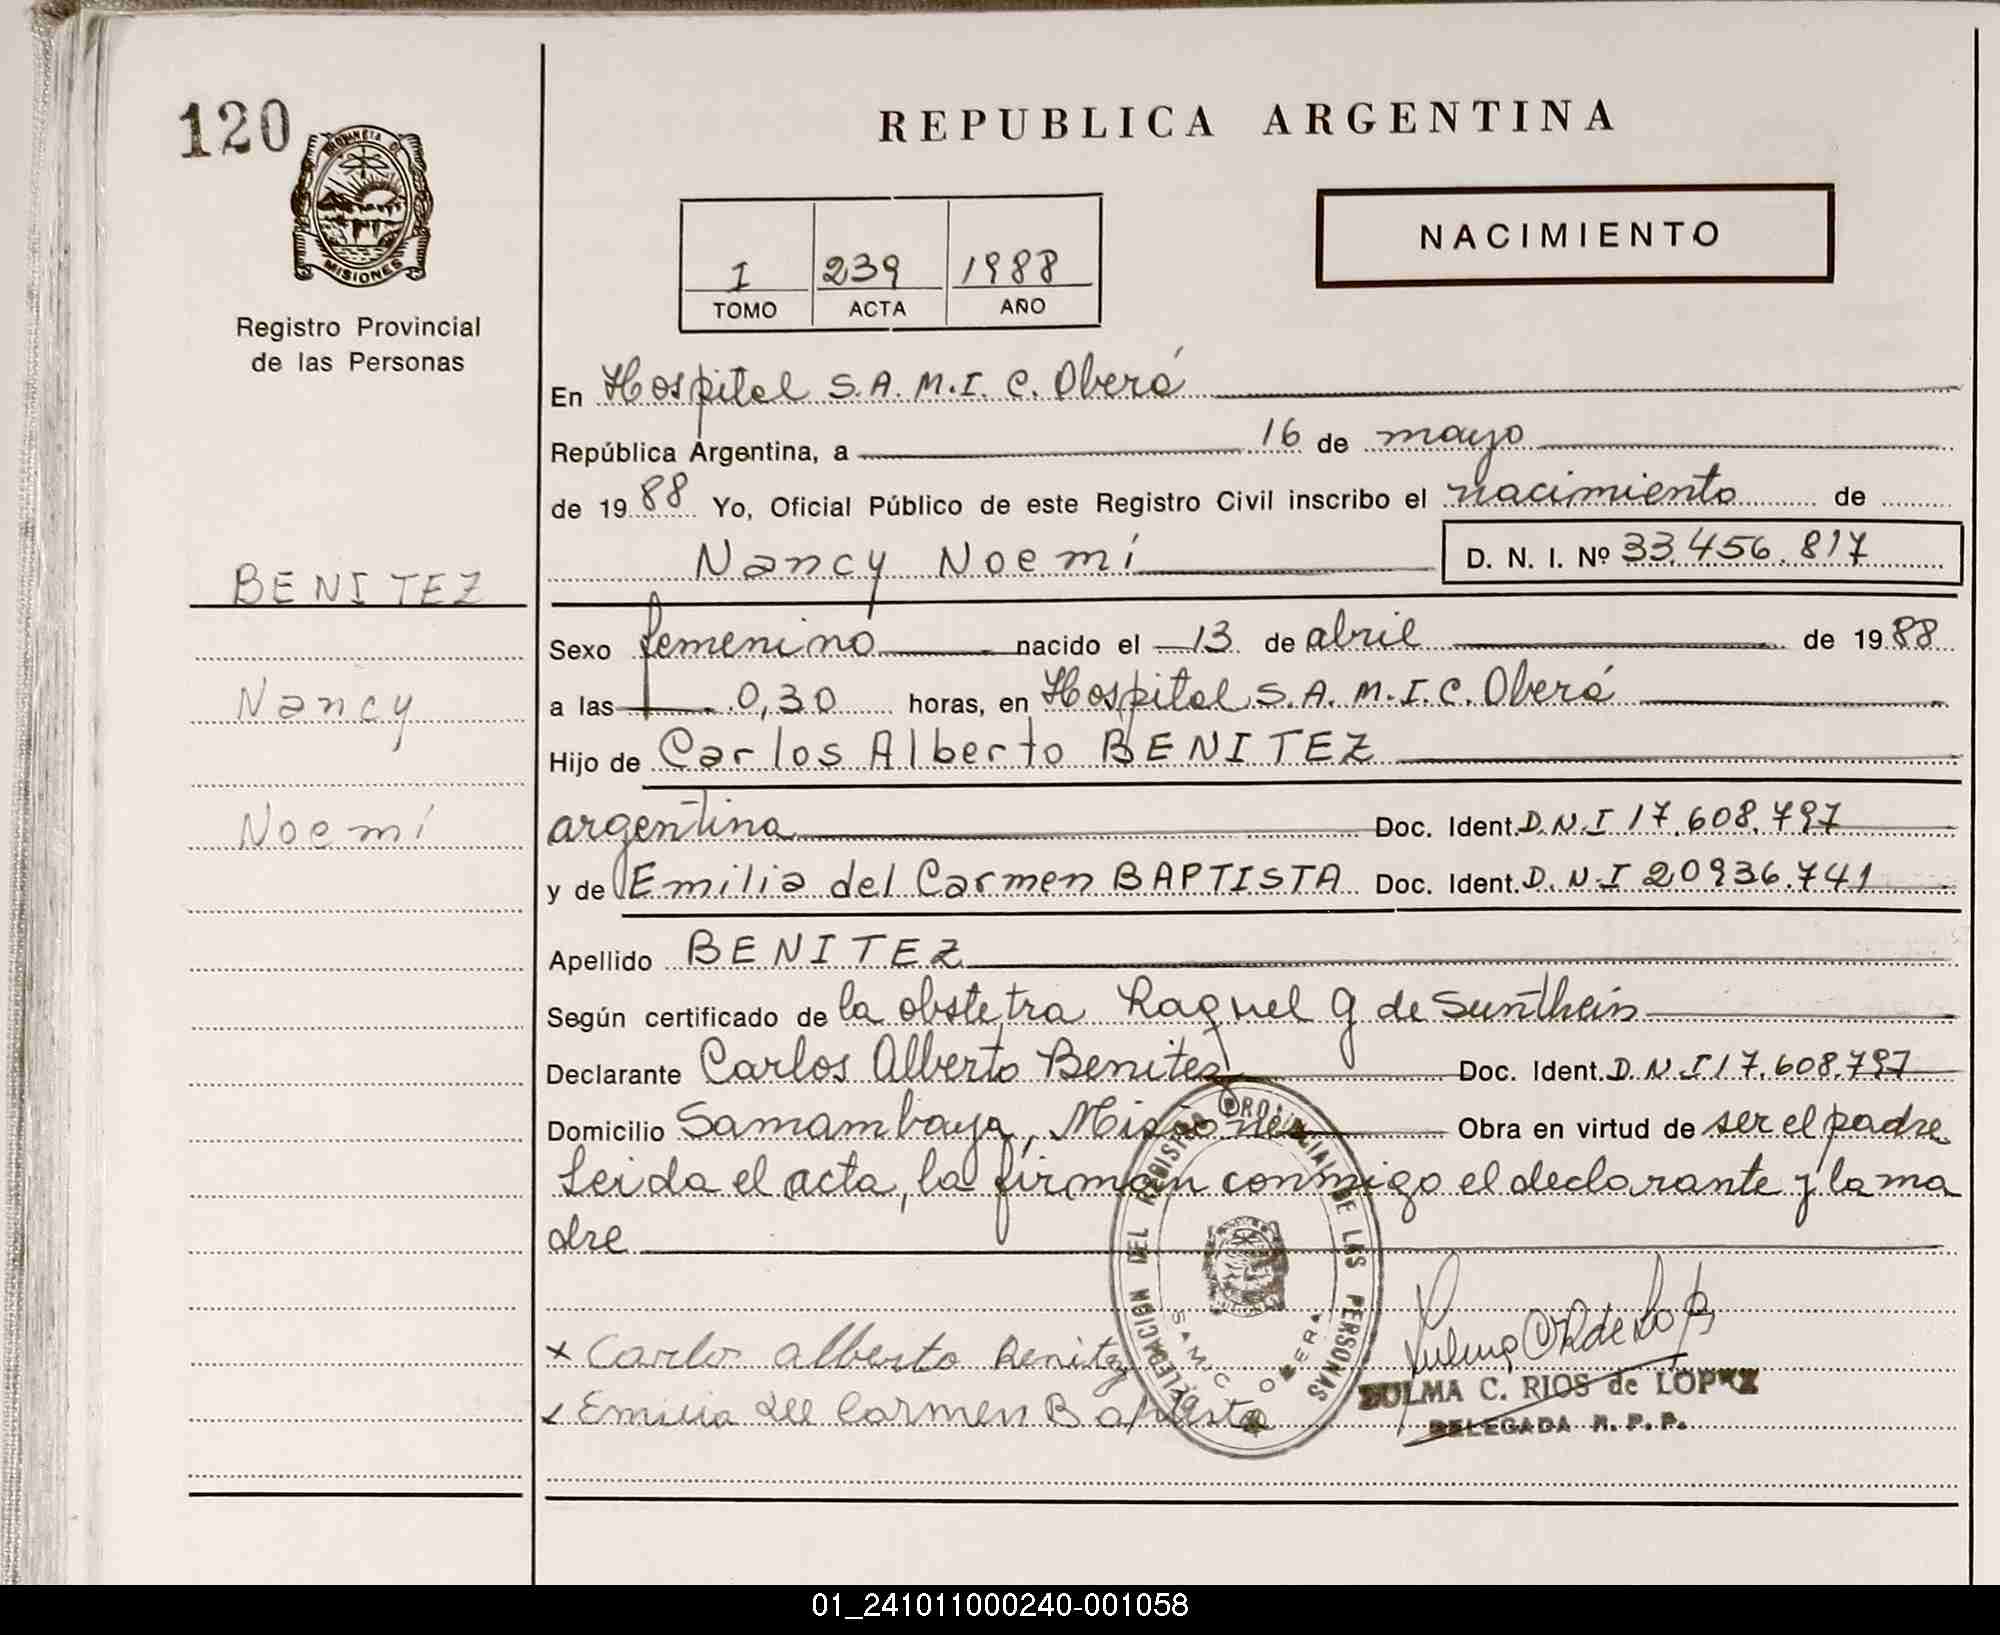 120
PROVINCIA DE
MISIONES
Registro Provincial
de las Personas
REPUBLICA ARGENTINA
NACIMIENTO
I 239 1988
TOMO ACTA AÑO
En Hospital S.A.M.I.C. Oberá
República Argentina, a 16 de mayo
de 1988 Yo, Oficial Público de este Registro Civil inscribo el nacimiento de
Nancy Noemí D. N. I. Nº 33.456.817
BENITEZ
Nancy
Noemí
Sexo femenino nacido el 13 de abril de 1988
a las 0,30 horas, en Hospital S.A.M.I.C. Oberá
Hijo de Carlos Alberto BENITEZ
argentina Doc. Ident. D.N.I 17.608.797
y de Emilia del Carmen BAPTISTA Doc. Ident. D.N.I 20936.741
Apellido BENITEZ
Según certificado de la obstetra Raquel G de Sunthein
Declarante Carlos Alberto Benitez Doc. Ident. D.N.I 17.608.797
Domicilio Samambaya, Misiones Obra en virtud de ser el padre
Leida el acta, la firman conmigo el declarante y la ma
dre
DELEGACION DEL REGISTRO PROVINCIAL DE LAS PERSONAS
SAMIC OBERA
x Carlos alberto Benitez
Emilia del Carmen Baptista
ZULMA C. RIOS de LOPEZ
DELEGADA R. P. P.
01_241011000240-001058